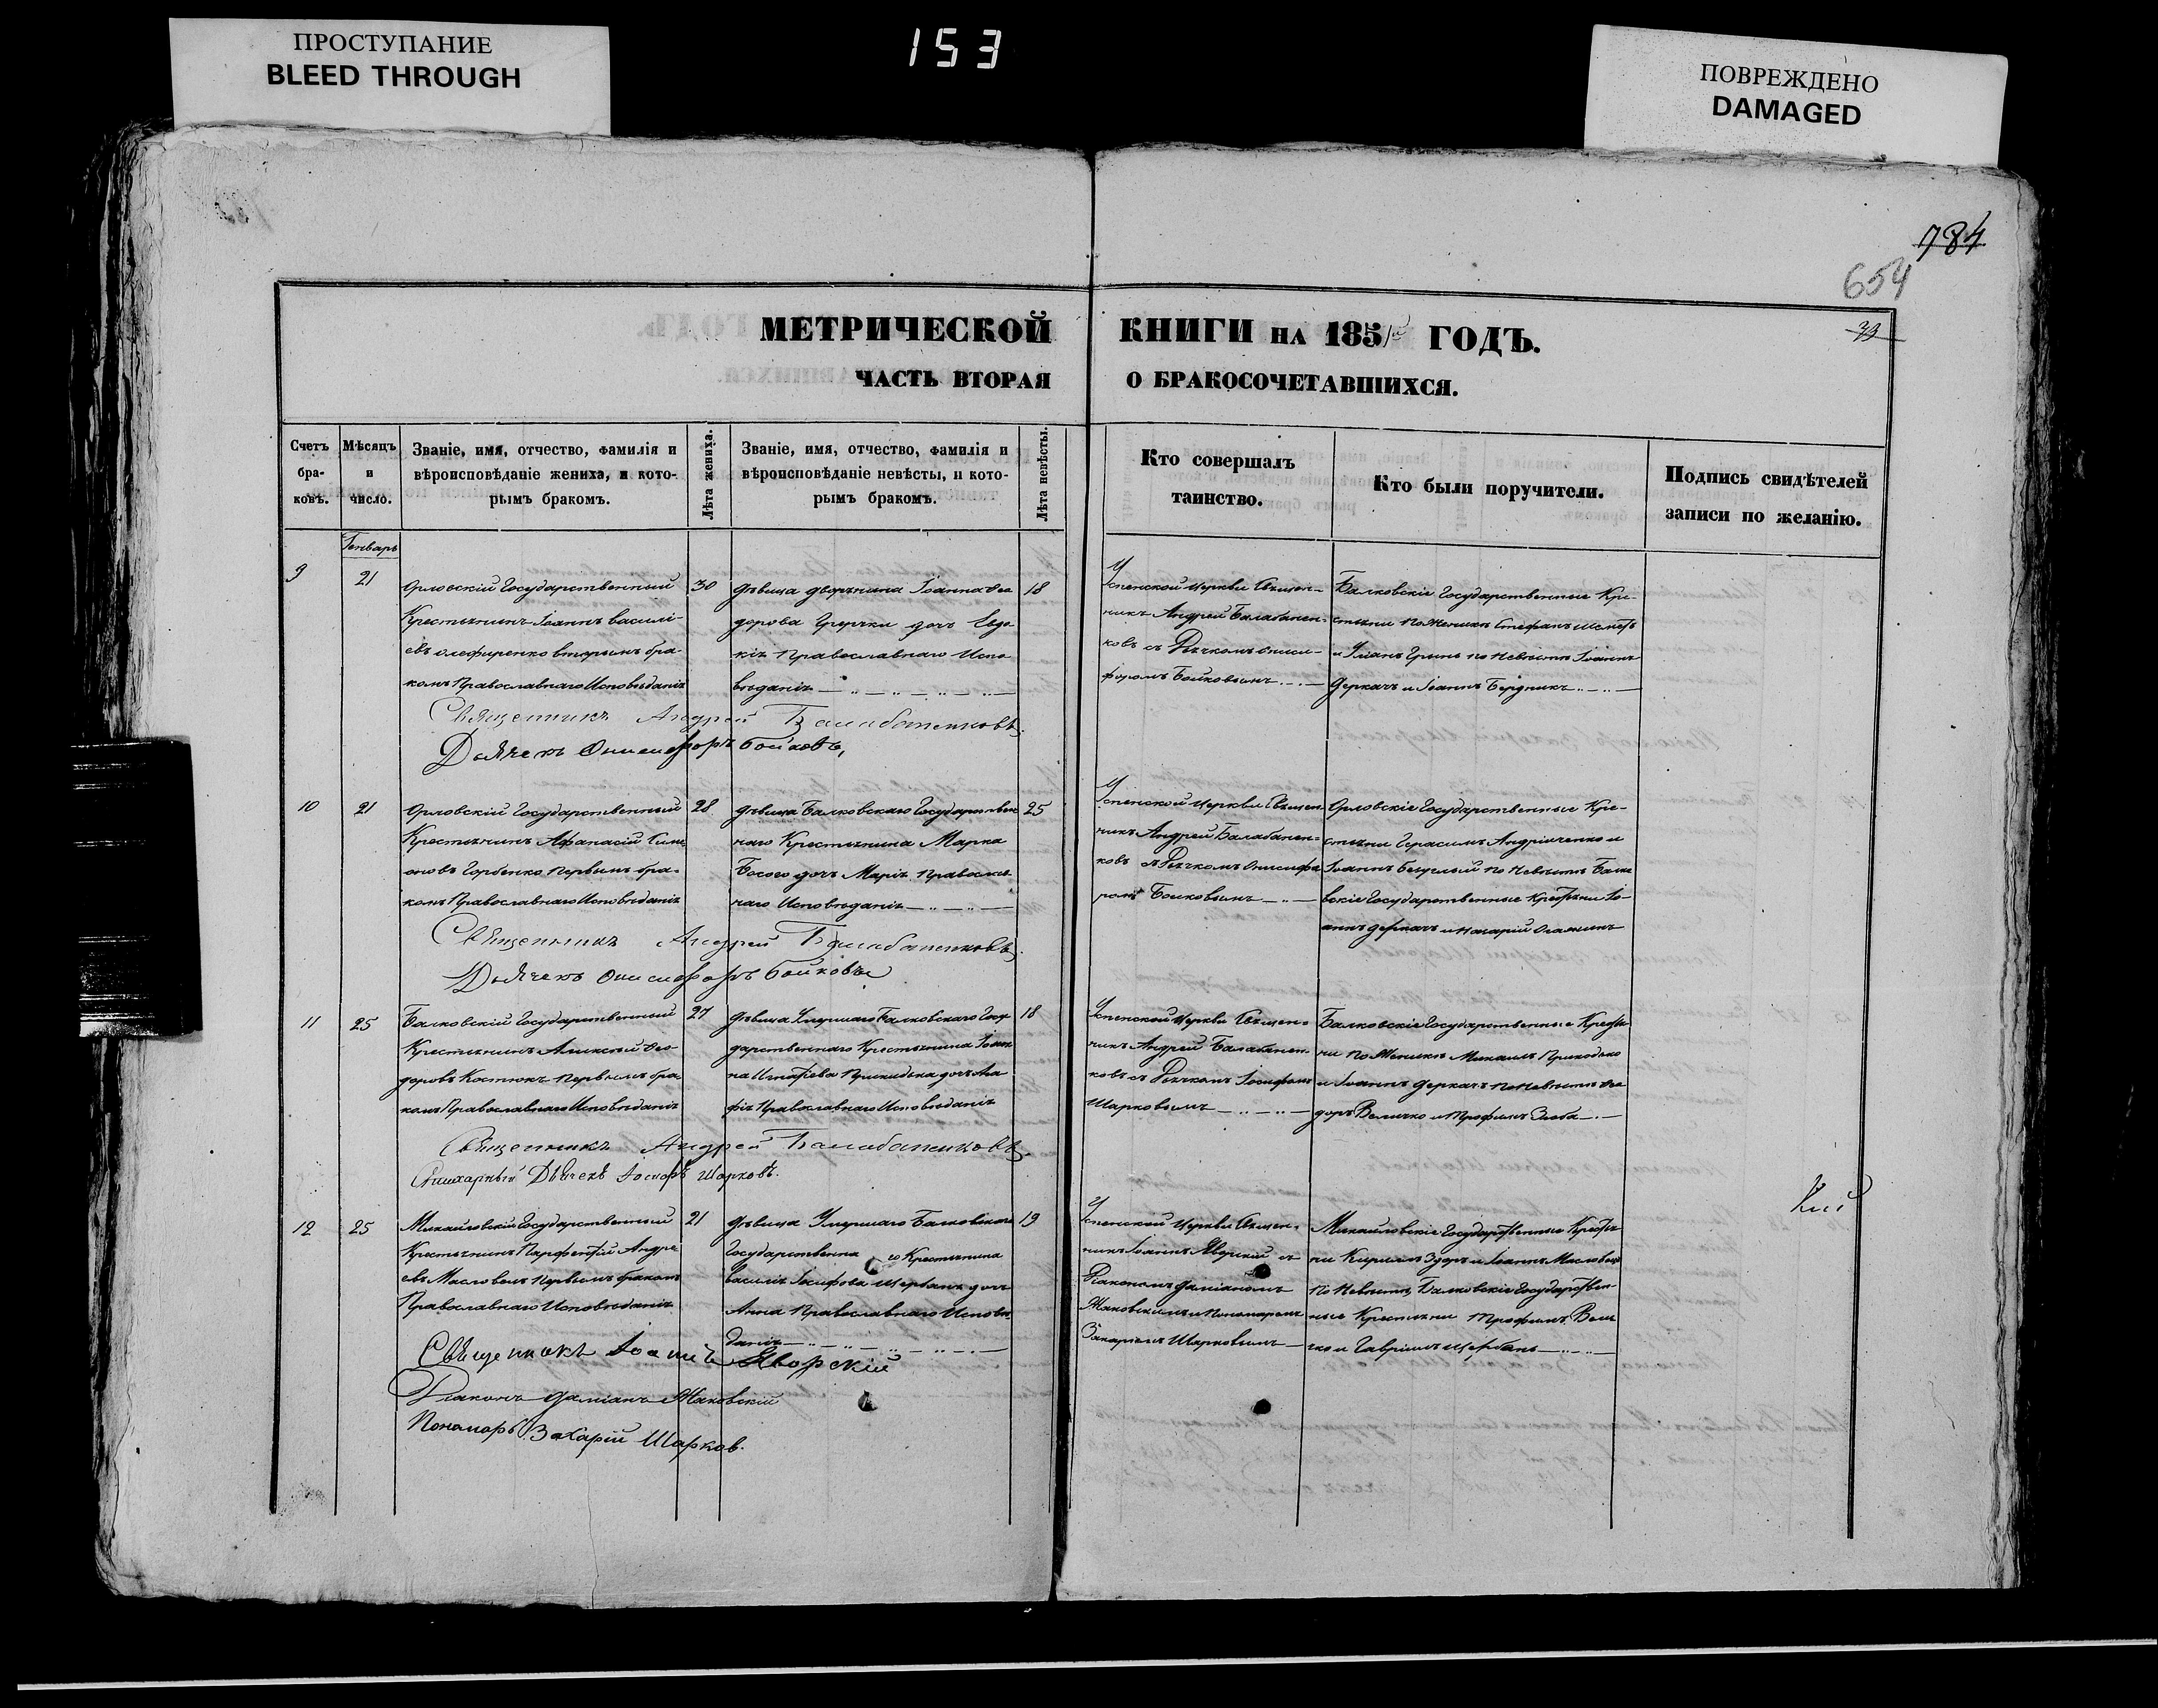 ПРОСТУПАНИЕ
BLEED THROUGH
153
ПОВРЕЖДЕНО
DAMAGED
784
654
МЕТРИЧЕСКОЙ КНИГИ НА 1851й ГОДЪ.
ЧАСТЬ ВТОРАЯ О БРАКОСОЧЕТАВШИХСЯ.
Счетъ браковъ.
Мѣсяцъ и число.
Званіе, имя, отчество, фамилія и
вѣроисповѣданіе жениха, и кото-
рымъ бракомъ.
Лѣта жениха.
Званіе, имя, отчество, фамилія и
вѣроисповѣданіе невѣсты, и кото-
рымъ бракомъ.
Лѣта невѣсты.
Кто совершалъ
таинство.
Кто были поручители.
Подпись свидѣтелей
записи по желанію.
Генварь
9
21
Орловскій Государственный
Крестьянинъ Іоаннъ Василі-
евъ Олефиренко вторымъ бра-
комъ Православнаго Исповѣданія
30
дѣвица дворянина Іоанна Фео
дорова дочь Евдо
кія Православнаго Испо
вѣданія
18
Успенской Церкви Священ-
никъ Андрей Балабанен-
ковъ съ Дячкомъ Ониси-
форомъ Бойковымъ
Балковскіе Государственные Кре-
стьяни по Женихѣ Стефанъ
и по Невѣстѣ Іоаннъ
Деркачъ и Іоаннъ Бердникъ
Священникъ Андрей Балабаненковъ
Дьячекъ Онисифоръ Бойковъ
10
21
Орловскій Государственный
Крестьянинъ Афанасій Симе
оновъ Горбенко Первымъ бра-
комъ Православнаго Исповѣданія
28
дѣвица Балковскаго Государствен
наго Крестьянина Марка
Босого дочь Марія Православ
наго Исповѣданія
25
Успенской Церкви Священ-
никъ Андрей Балабанен-
ковъ съ Дячкомъ Онисифо
ромъ Бойковымъ
Орловскіе Государственные Кре-
стьяни Герасимъ Андрійченко и
Іоаннъ Безуглый по Невѣстѣ Балко
вскіе Государственные Крестьяни Іо-
аннъ Деркачъ и
Священникъ Андрей Балабаненковъ
Дьячекъ Онисифоръ Бойковъ
11
25
Балковскій Государственный
Крестьянинъ Алексѣй Фео-
доровъ Костюкъ Первымъ бра
комъ Православнаго Исповѣданія
27
дѣвица Умершаго Балковскаго Госу
дарственнаго Крестьянина Іоан
на Игнатіева Приходька дочь Ага
фія Православнаго Исповѣданія
18
Успенской Церкви Священ-
никъ Андрей Балабанен-
ковъ съ Дячкомъ Іосифомъ
Шарковымъ
Балковскіе Государственные Крестья
ни по Женихѣ Михаилъ Приходько
и Іоаннъ Деркачъ по Невѣстѣ Фео
доръ Величко и Трофимъ
Священникъ Андрей Балабаненковъ
Стихарный Дьячекъ Іосифъ Шарковъ.
12
25
Михайловскій Государственный
Крестьянинъ Парфентій Андре
евъ Масловецъ Первымъ бракомъ
Православнаго Исповѣданія
21
дѣвица Умершаго Балковскаго
Государственна го Крестьянина
Василія Іосифова Щербань дочь
Анна Православнаго Исповѣ
данія
19
Успенской Церкви Священ-
никъ Іоаннъ Яворскій съ
Діакономъ Даміаномъ
Жаковскимъ и Пономаремъ
Захаріемъ Шарковымъ
Михайловскіе Государственные Крестья
ни Кирилъ Здоръ и Іоаннъ Масловецъ
по Невѣстѣ Балковскіе Государствен-
ные Крестьяни Трофимъ Вели
чко и Гавріилъ Щербань
Священникъ Іоаннъ Яворскій
Діаконъ Даміанъ Жаковскій
Пономарь Захарій Шарков.